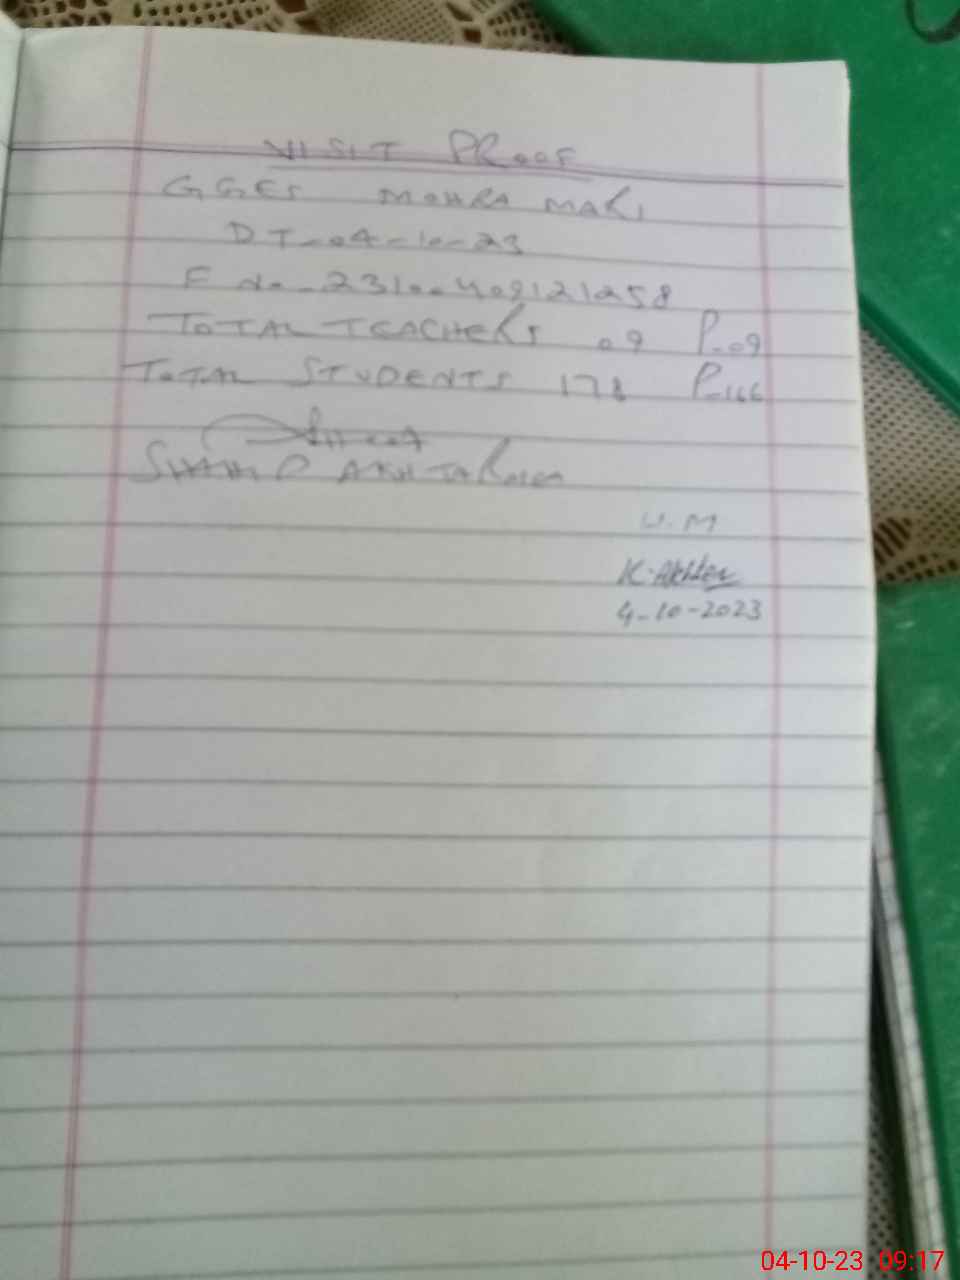 VISIT PROOF
GGES MOHRA MARI
DT-04-10-23
F No-23100409121258
TOTAL TEACHERS 09 P-09
TOTAL STUDENTS 178 P-166
AKHTAR
U.M
K.Akhter
4-10-2023
04-10-23 09:17